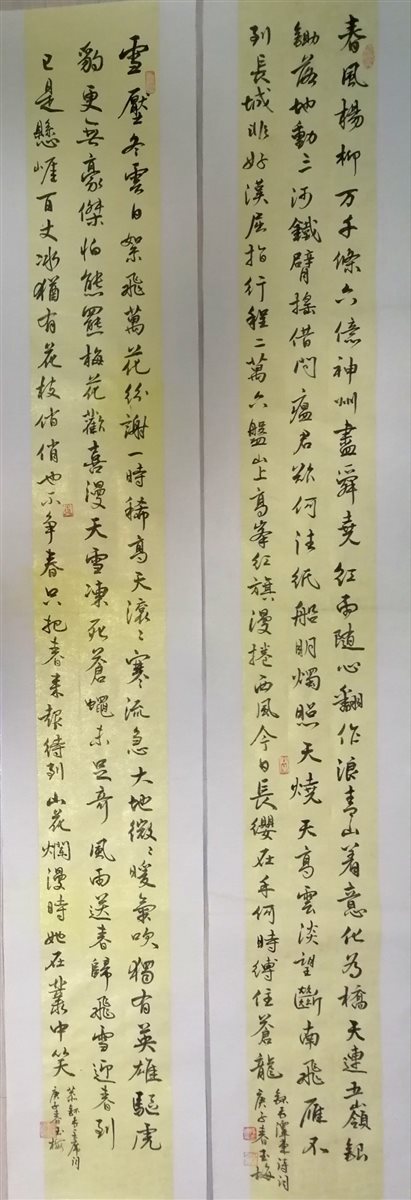 春風楊柳万千條六億神州盡舜堯紅雨随心翻作浪青山着意化為橋天連五嶺銀
鋤落地動三河鐵臂搖借問瘟君欲何往紙船明燭照天燒天高雲淡望斷南飛雁不
到長城非好漢屈指行程二萬六盤山上高峯紅旗漫捲西風今日長纓在手何時縛住蒼龍
録毛澤東詩詞
庚子春玉梅
雪壓冬雲白絮飛萬花紛謝一時稀高天滾〻寒流急大地微〻暖氣吹獨有英雄驅虎
豹更無豪傑怕熊羆梅花歡喜漫天雪凍死蒼蠅未足奇風雨送春歸飛雪迎春到
已是懸崖百丈冰猶有花枝俏俏也不争春只把春来報待到山花爛漫時她在叢中笑
恭録毛主席詞
庚子春玉梅